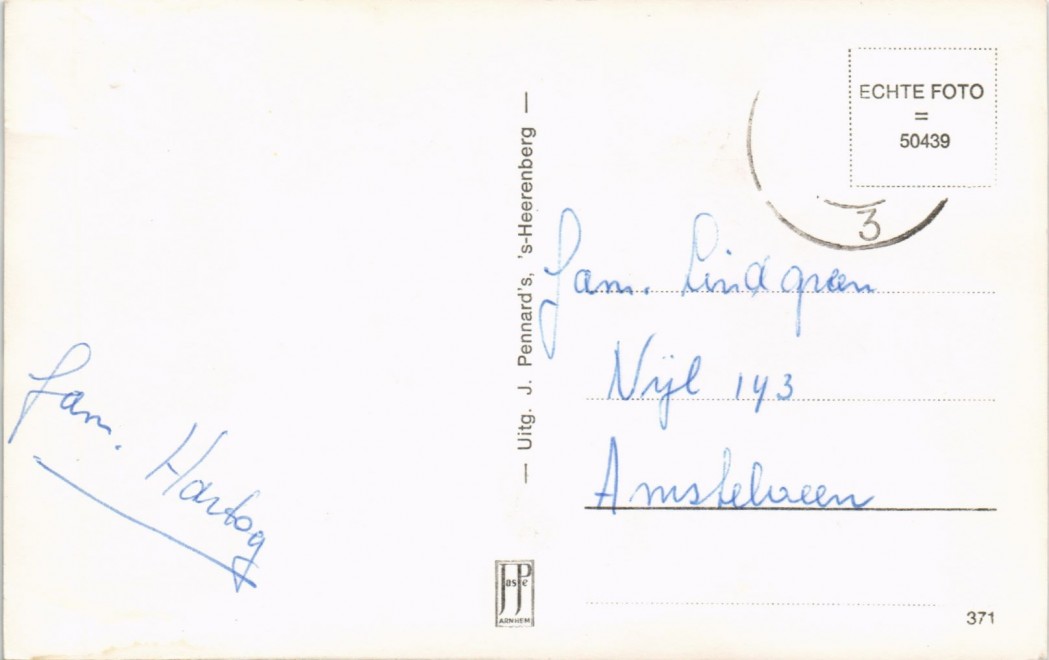 ECHTE FOTO
=
50439
3
— Uitg. J. Pennard's, 's-Heerenberg —
Fam. Lindgreen
Nijl 143
Amstelveen
Fam. Hartog
JosPé
ARNHEM
371